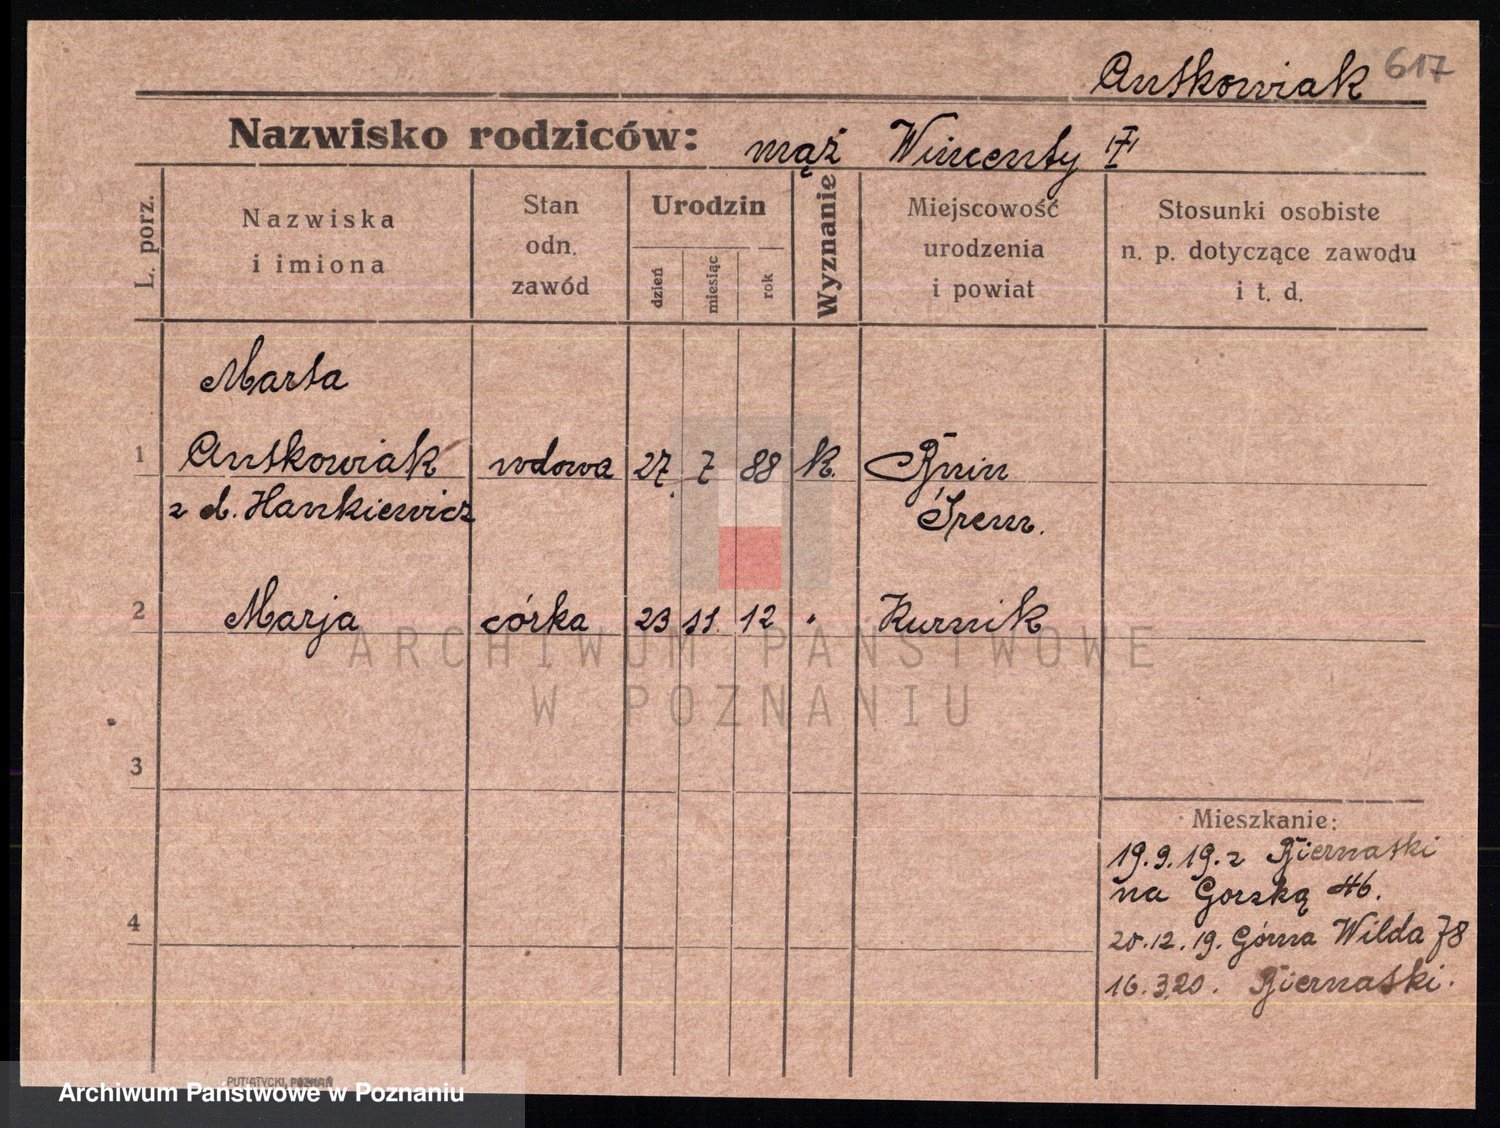 Antkowiak 617
Nazwisko rodziców: mąż Wincenty
L. porz.
Nazwiska
i imiona
Stan
odn.
zawód
Urodzin
dzień
miesiąc
rok
Wyznanie
Miejscowość
urodzenia
i powiat
Stosunki osobiste
n. p. dotyczące zawodu
i t. d.
Marta
1 Antkowiak wdowa 27. 7 88 k. Bnin
z d. Hankiewicz Śrem.
2 Marja córka 23 11. 12 " Kurnik
3
4
Mieszkanie:
19.9.19. z Biernatki
na Gorską 46.
20.12.19. Górna Wilda 78
16.3.20. Biernatki.
ARCHIWUM PAŃSTWOWE
W POZNANIU
PUTIATYCKI, POZNAŃ
Archiwum Państwowe w Poznaniu